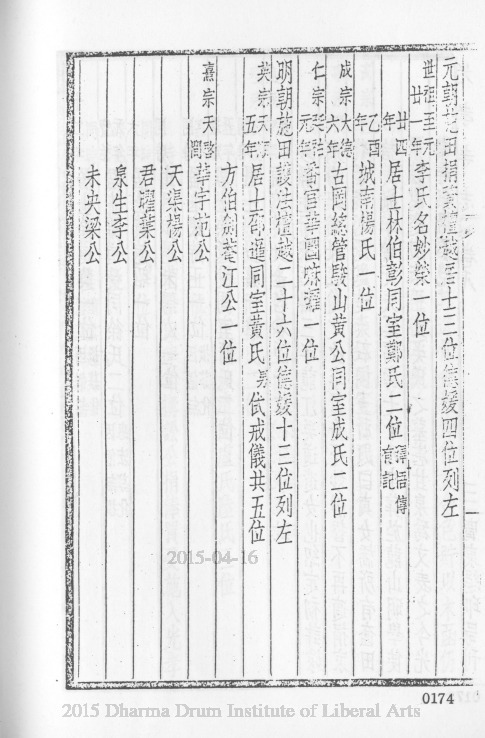 元朝施田捐資檀越居士三位德媛四位列左
世祖至元廿一年李氏名妙榮一位
廿四年居士林伯彰同室鄭氏二位
乙酉年城南楊氏一位
成宗大德六年古岡總管駿山黃公同室成氏二位
仁宗 元年 一位
明朝施田護法檀越二十六位德媛十三位列左
英宗天順五年居士邵暹同室黃氏男 戒儀共五位
方伯劍菴江公一位
熹宗天啓間華宇范公
天渠楊公
君曜葉公
泉生李公
未央梁公
2015-04-16
0174
2015 Dharma Drum Institute of Liberal Arts